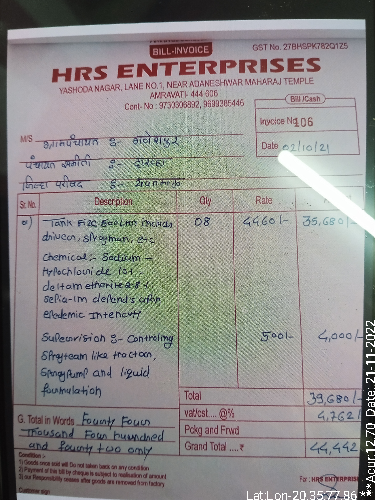 BILL-INVOICE
GST No. 27BHSPK782Q1Z5
HRS ENTERPRISES
YASHODA NAGAR, LANE NO.1, NEAR ADANESHWAR MAHARAJ TEMPLE
AMRAVATI- 444 606
Cont.- No : 9730306892, 9699385446
Bill /Cash
Invoice No 106
M/S ग्रामपंचायत
Date 02/10/21
पंचायत समिती
जिल्हा परिषद
Sr.No. Description Qty Rate
08 4460/- 35,680/-
Chemical :- Sodium -
Supervision :- Controling 500/- 4,000/-
Sprayteam like tractor,
Spraypump and liquid
formulation
Total 39,680/-
vat/cst.... @% 4,762/-
G. Total in Words Fourty Four
Pckg and Frwd
Thousand Four hundred
and fourty two only
Grand Total .... ₹ 44,442
Condition :-
1) Goods once sold will Do not taken back on any condition
2) Payment of the bill by cheque is subject to realisation
3) our Responsibility ceases after goods are removed from factory
For : HRS ENTERPRISE
Customer Sign.
***Acur:12.70 Date: 21-11-2022
Lat:Lon-20.35:77.86